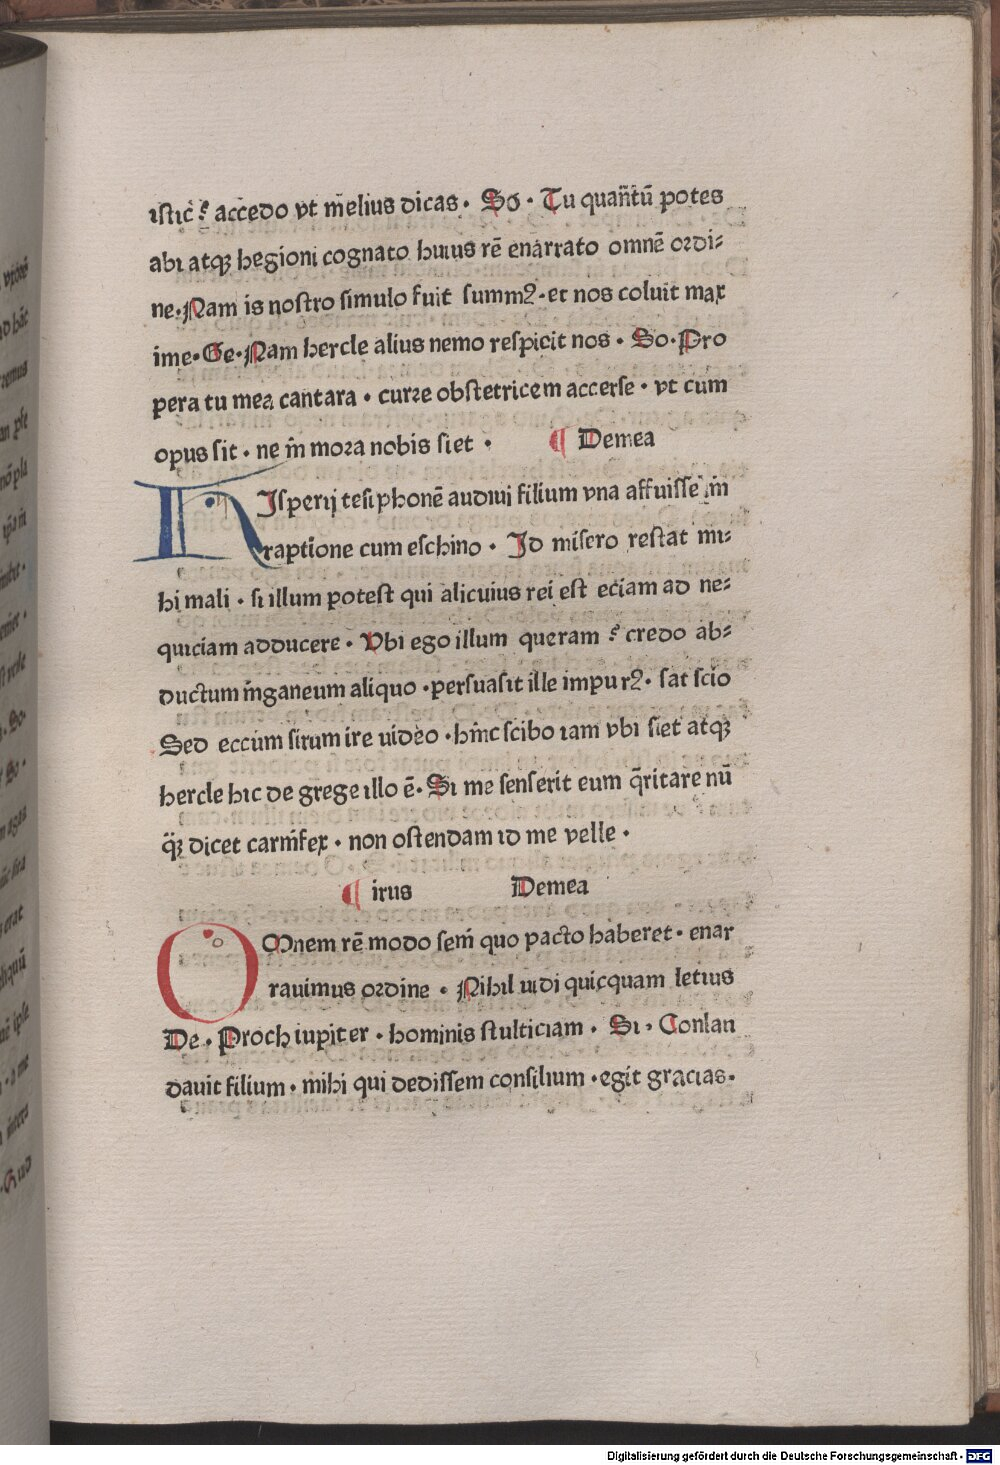 istic̄ ꝰ acc̄edo vt m̄elius dicas · So · Tu quan̄tū potes
abi atqꝫ hegioni cognato huius rē enarrato omnē ordi⸗
ne · Nam is nostro simulo fuit summꝰ · et nos coluit max
ime · Ge · Nam hercle alius nemo respicit nos · So · Pro
pera tu mea cantara · curre obstetricem accerse · vt cum
opus sit · ne m̄ mora nobis siet · ¶ Demea
DIsperij tesiphonē audiui filium vna affuisse m̄
raptione cum eschino · Id misero restat mi⸗
hi mali · si illum potest qui alicuius rei est eciam ad ne⸗
quiciam adducere · Vbi ego illum queram ꝰ credo ab⸗
ductum m̄ganeum aliquo · persuasit ille impurꝰ · sat scio
Sed eccum sirum ire uideo · hm̄c scibo iam vbi siet atqꝫ
hercle hic de grege illo ē · Si me senserit eum q̄ritare nū
q̄ꝫ dicet carm̄fex · non ostendam id me velle ·
¶ irus Demea
OMnem rē modo sem̄ quo pacto haberet · enar
rauimus ordine · Nihil uidi quicquam letius
De · Proch iupiter · hominis stulticiam · Si · Conlau
dauit filium · mihi qui dedissem consilium · egit gracias ·
Digitalisierung gefördert durch die Deutsche Forschungsgemeinschaft · DFG